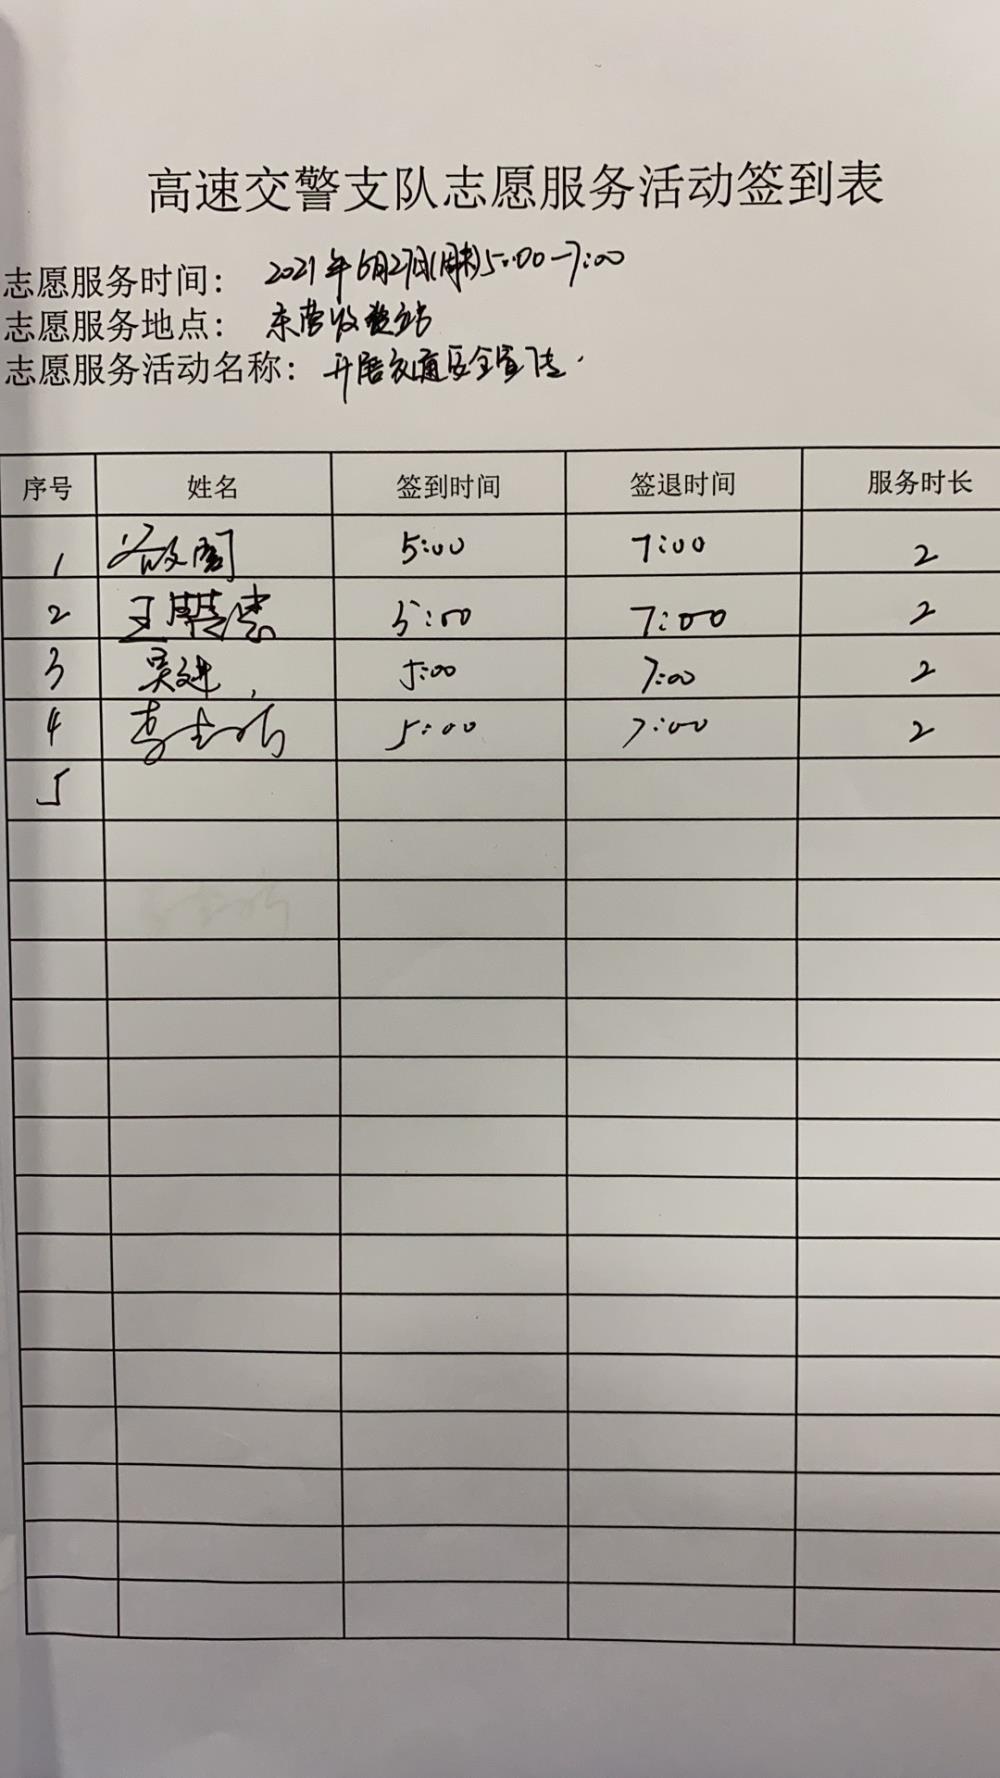 高速交警支队志愿服务活动签到表
志愿服务时间： 2021年6月27日(周末)5:00-7:00
志愿服务地点： 东营收费站
志愿服务活动名称： 开展交通安全宣传.
序号 姓名 签到时间 签退时间 服务时长
1 5:00 7:00 2
2 王 5:00 7:00 2
3 吴 5:00 7:00 2
4 李 5:00 7:00 2
5